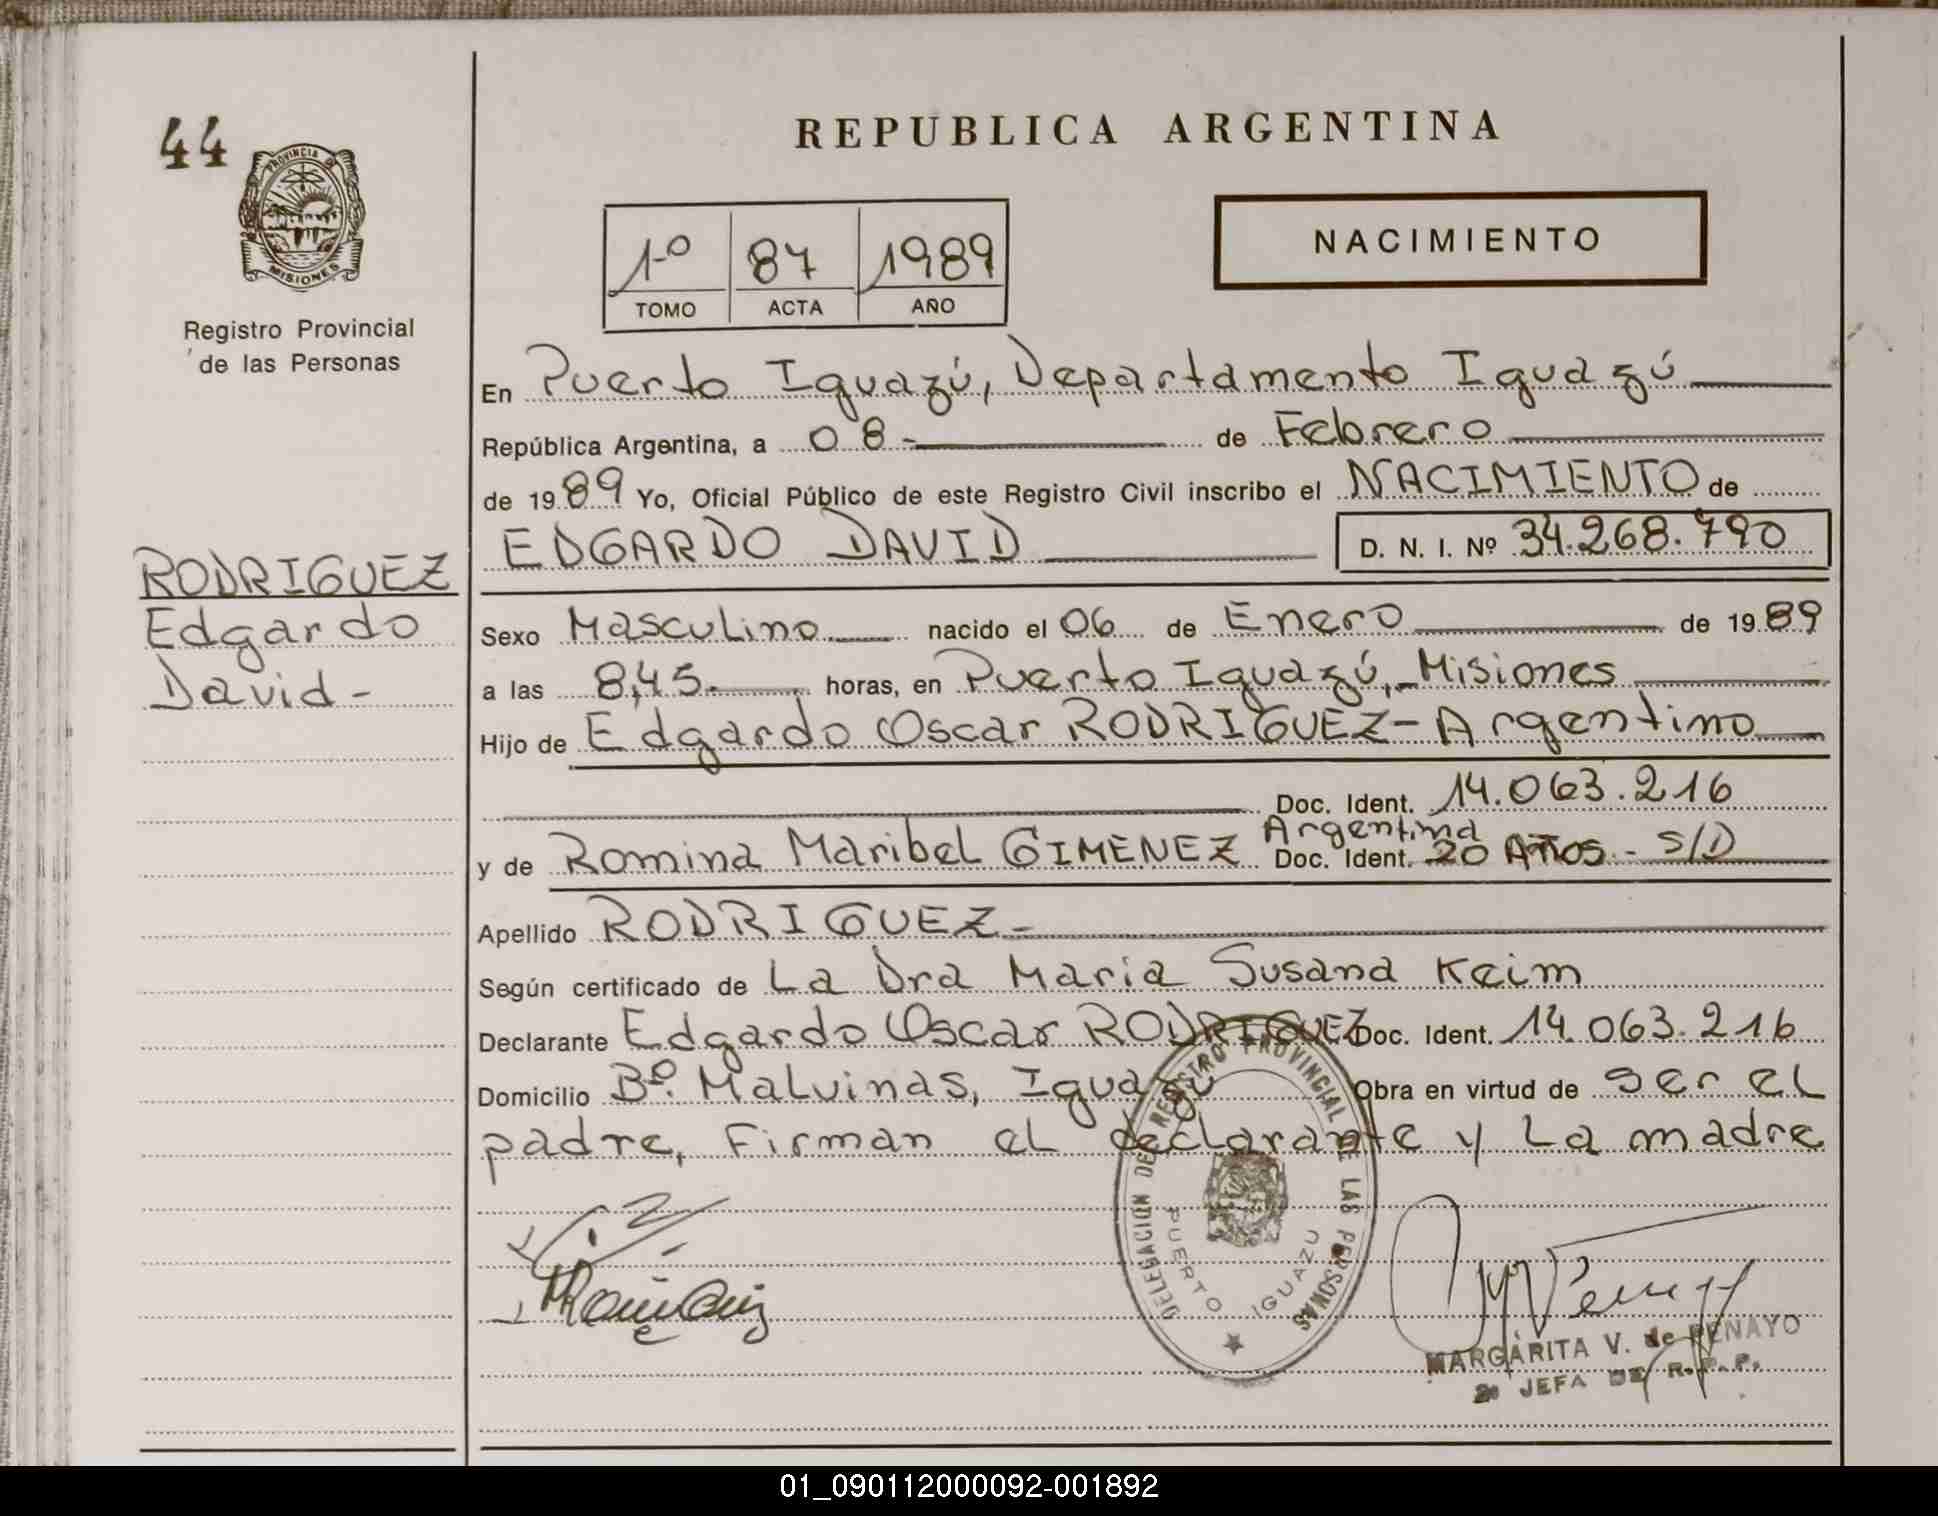 44
PROVINCIA DE
MISIONES
Registro Provincial
de las Personas
RODRIGUEZ
Edgardo
David -
REPUBLICA ARGENTINA
1º 87 1989
TOMO ACTA AÑO
NACIMIENTO
En Puerto Iguazú, Departamento Iguazú
República Argentina, a 08- de Febrero
de 1989 Yo, Oficial Público de este Registro Civil inscribo el NACIMIENTO de
EDGARDO DAVID D. N. I. Nº 34.268.790
Sexo Masculino nacido el 06 de Enero de 1989
a las 8,45. horas, en Puerto Iguazú, Misiones
Hijo de Edgardo Oscar RODRIGUEZ - Argentino
Doc. Ident. 14.063.216
Argentina
y de Romina Maribel GIMENEZ Doc. Ident. 20 AÑOS - S/D
Apellido RODRIGUEZ -
Según certificado de La Dra Maria Susana Keim
Declarante Edgardo Oscar RODRIGUEZ Doc. Ident. 14.063.216
Domicilio Bº. Malvinas, Iguazú Obra en virtud de ser el
padre, Firman el declarante y La madre
DELEGACION DEL REGISTRO PROVINCIAL DE LAS PERSONAS
PUERTO IGUAZU
MARGARITA V. de PENAYO
JEFA DE R. P. P.
01_090112000092-001892